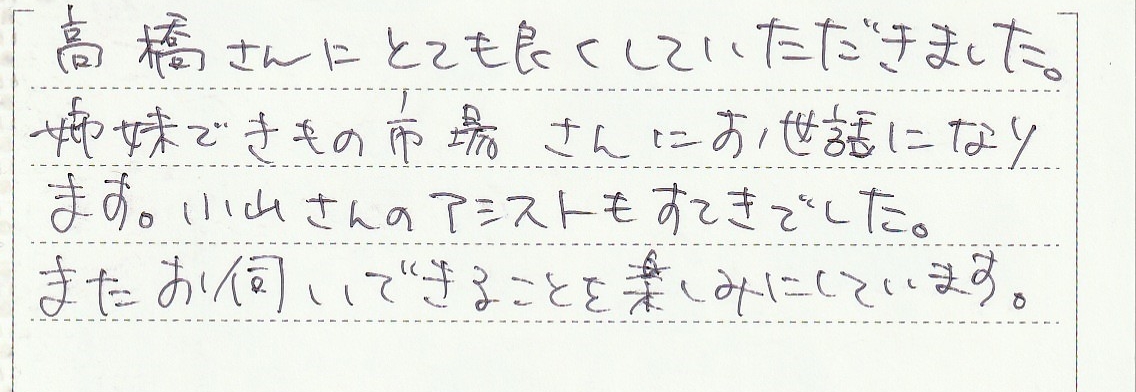 高橋さんにとても良くしていただきました。
姉妹できもの市場さんにお世話になり
ます。小山さんのアシストもすてきでした。
またお伺いできることを楽しみにしています。